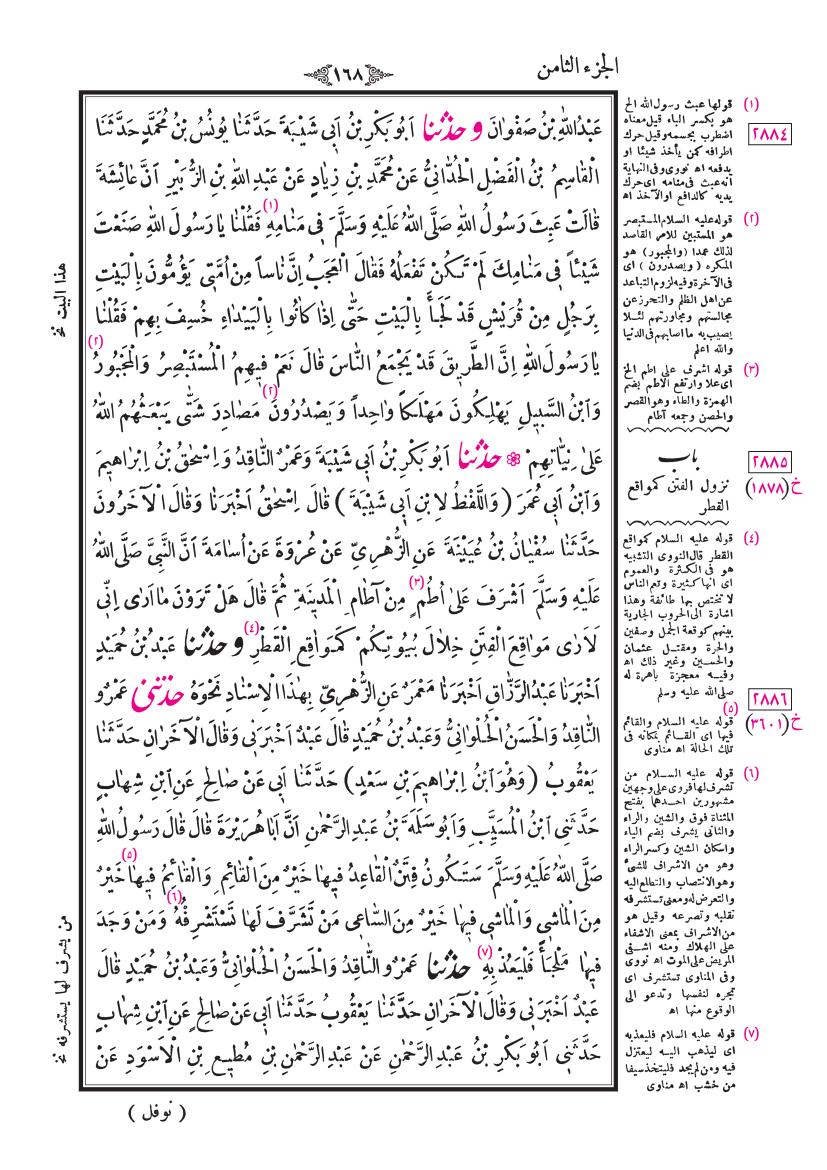 الجزء الثامن
١٦٨
عَبْدُاللهِ بْنُ صَفْوَانَ وحدثنا اَبُوبَكْرِ بْنُ اَبِي شَيْبَةَ حَدَّثَنَا يُونُسُ بْنُ مُحَمَّدٍ حَدَّثَنَا
الْقَاسِمُ بْنُ الْفَضْلِ الْحُدَّانِيُّ عَنْ مُحَمَّدِ بْنِ زِيَادٍ عَنْ عَبْدِاللهِ بْنِ الزُّبَيْرِ اَنَّ عَائِشَةَ
قَالَتْ عَبِثَ رَسُولُ اللهِ صَلَّى اللهُ عَلَيْهِ وَسَلَّمَ فِي مَنَامِهِ (١) فَقُلْنَا يَا رَسُولَ اللهِ صَنَعْتَ
شَيْئًا فِي مَنَامِكَ لَمْ تَكُنْ تَفْعَلُهُ فَقَالَ الْعَجَبُ اِنَّ نَاسًا مِنْ اُمَّتِي يَؤُمُّونَ بِالْبَيْتِ
بِرَجُلٍ مِنْ قُرَيْشٍ قَدْ لَجَأَ بِالْبَيْتِ حَتَّى اِذَا كَانُوا بِالْبَيْدَاءِ خُسِفَ بِهِمْ فَقُلْنَا
يَا رَسُولَ اللهِ اِنَّ الطَّرِيقَ قَدْ يَجْمَعُ النَّاسَ قَالَ نَعَمْ فِيهِمُ الْمُسْتَبْصِرُ وَالْمَجْبُورُ (٢)
وَابْنُ السَّبِيلِ يَهْلِكُونَ مَهْلَكًا وَاحِدًا وَيَصْدُرُونَ (٢) مَصَادِرَ شَتَّى يَبْعَثُهُمُ اللهُ
عَلَى نِيَّاتِهِمْ حدثنا اَبُوبَكْرِ بْنُ اَبِي شَيْبَةَ وَعَمْرٌو النَّاقِدُ وَاِسْحٰقُ بْنُ اِبْرَاهِيمَ
وَابْنُ اَبِي عُمَرَ (وَاللَّفْظُ لِابْنِ اَبِي شَيْبَةَ) قَالَ اِسْحٰقُ اَخْبَرَنَا وَقَالَ الْآخَرُونَ
حَدَّثَنَا سُفْيَانُ بْنُ عُيَيْنَةَ عَنِ الزُّهْرِيِّ عَنْ عُرْوَةَ عَنْ اُسَامَةَ اَنَّ النَّبِيَّ صَلَّى اللهُ
عَلَيْهِ وَسَلَّمَ اَشْرَفَ عَلَى اُطُمٍ (٣) مِنْ آطَامِ الْمَدِينَةِ ثُمَّ قَالَ هَلْ تَرَوْنَ مَا اَرَى اِنِّي
لَاَرَى مَوَاقِعَ الْفِتَنِ خِلَالَ بُيُوتِكُمْ كَمَوَاقِعِ الْقَطْرِ (٤) وحدثنا عَبْدُ بْنُ حُمَيْدٍ
اَخْبَرَنَا عَبْدُالرَّزَّاقِ اَخْبَرَنَا مَعْمَرٌ عَنِ الزُّهْرِيِّ بِهٰذَا الْاِسْنَادِ نَحْوَهُ حدثني عَمْرٌو
النَّاقِدُ وَالْحَسَنُ الْحُلْوَانِيُّ وَعَبْدُ بْنُ حُمَيْدٍ قَالَ عَبْدٌ اَخْبَرَنِي وَقَالَ الْآخَرَانِ حَدَّثَنَا
يَعْقُوبُ (وَهُوَ ابْنُ اِبْرَاهِيمَ بْنِ سَعْدٍ) حَدَّثَنَا اَبِي عَنْ صَالِحٍ عَنِ ابْنِ شِهَابٍ
حَدَّثَنِي ابْنُ الْمُسَيَّبِ وَاَبُوسَلَمَةَ بْنُ عَبْدِالرَّحْمٰنِ اَنَّ اَبَا هُرَيْرَةَ قَالَ قَالَ رَسُولُ اللهِ
صَلَّى اللهُ عَلَيْهِ وَسَلَّمَ سَتَكُونُ فِتَنٌ الْقَاعِدُ فِيهَا خَيْرٌ مِنَ الْقَائِمِ وَالْقَائِمُ فِيهَا (٥) خَيْرٌ
مِنَ الْمَاشِي وَالْمَاشِي فِيهَا خَيْرٌ مِنَ السَّاعِي مَنْ تَشَرَّفَ لَهَا تَسْتَشْرِفُهُ (٦) وَمَنْ وَجَدَ
فِيهَا مَلْجَأً فَلْيَعُذْ بِهِ (٧) حدثنا عَمْرٌو النَّاقِدُ وَالْحَسَنُ الْحُلْوَانِيُّ وَعَبْدُ بْنُ حُمَيْدٍ قَالَ
عَبْدٌ اَخْبَرَنِي وَقَالَ الْآخَرَانِ حَدَّثَنَا يَعْقُوبُ حَدَّثَنَا اَبِي عَنْ صَالِحٍ عَنِ ابْنِ شِهَابٍ
حَدَّثَنِي اَبُوبَكْرِ بْنُ عَبْدِالرَّحْمٰنِ عَنْ عَبْدِالرَّحْمٰنِ بْنِ مُطِيعِ بْنِ الْاَسْوَدِ عَنْ
(نوفل)
(١) قولها عبث رسول الله الخ
هو بكسر الباء قيل معناه
اضطرب بجسمه وقيل حرك
اطرافه كمن يأخذ شيئا او
يدفعه اه نووى وفى النهاية
انه عبث فى منامه اى حرك
يديه كالدافع او الآخذ اه
٢٨٨٤
(٢) قوله عليه السلام المستبصر
هو المستبين للامر القاصد
لذلك عمدا (والمجبور) هو
المكره (ويصدرون) اى
فى الآخرة وفيه لزوم التباعد
عن اهل الظلم والتحرز عن
مجالستهم ومجاورتهم لئلا
يصيب به ما اصابهم فى الدنيا
والله اعلم
(٣) قوله اشرف على اطم الخ
اى علا وارتفع الاطم بضم
الهمزة والطاء وهو القصر
والحصن وجمعه آطام
باب
نزول الفتن كمواقع
القطر
٢٨٨٥
خ (١٨٧٨)
(٤) قوله عليه السلام كمواقع
القطر قال النووى التشبيه
هو فى الكثرة والعموم
اى انها كثيرة وتعم الناس
لا تختص بها طائفة وهذا
اشارة الى الحروب الجارية
بينهم كوقعة الجمل وصفين
والحرة ومقتل عثمان
والحسين وغير ذلك اه
وفيه معجزة باهرة له
صلى الله عليه وسلم
٢٨٨٦
خ (٣٦٠١)
(٥) قوله عليه السلام والقائم
فيها اى القائم بمكانه فى
تلك الحالة اه مناوى
(٦) قوله عليه السلام من
تشرف لها فروى على وجهين
مشهورين احدهما بفتح
المثناة فوق والشين والراء
والثانى يشرف بضم الياء
واسكان الشين وكسر الراء
وهو من الاشراف للشئ
وهو الانتصاب والتطلع اليه
والتعرض له ومعنى تستشرفه
تقلبه وتصرعه وقيل هو
من الاشراف بمعنى الاشفاء
على الهلاك ومنه اشفى
المريض على الموت اه نووى
وفى المناوى تستشرف اى
تجره لنفسها وتدعو الى
الوقوع منها اه
(٧) قوله عليه السلام فليعذ به
اى ليذهب اليه ليعتزل
فيه ومن لم يجد فليتخذ سيفا
من خشب اه مناوى
هذا البيت نخ
من يشرف لها يستشرفه نخ